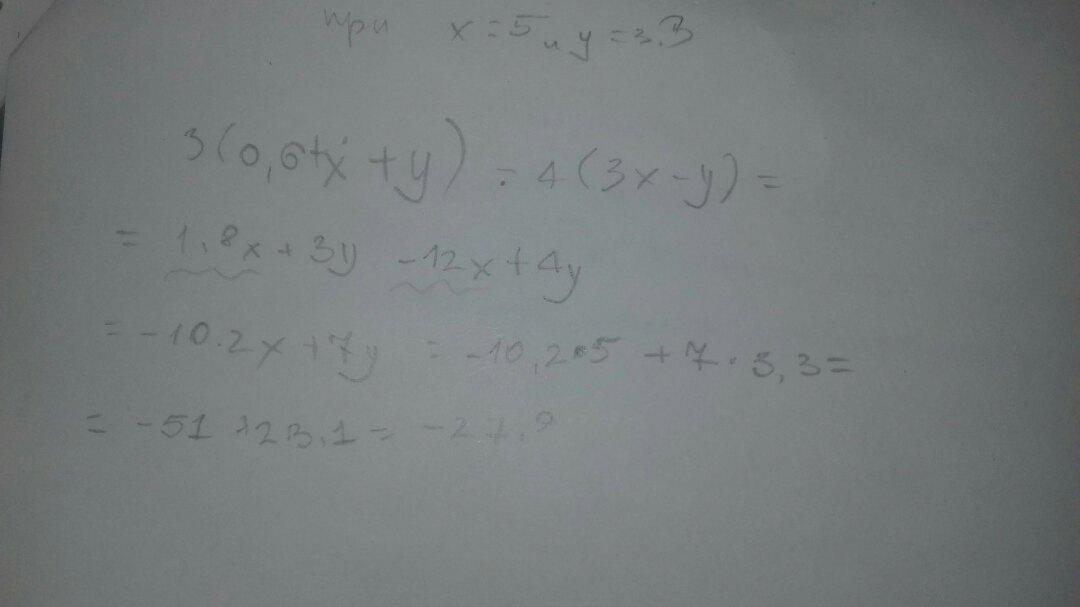 при x = 5 и y = 3.3
3(0,6x + y) - 4(3x - y) =
= 1,8x + 3y - 12x + 4y
= -10.2x + 7y = -10,2 • 5 + 7 · 3,3 =
= -51 + 23,1 = -27.9